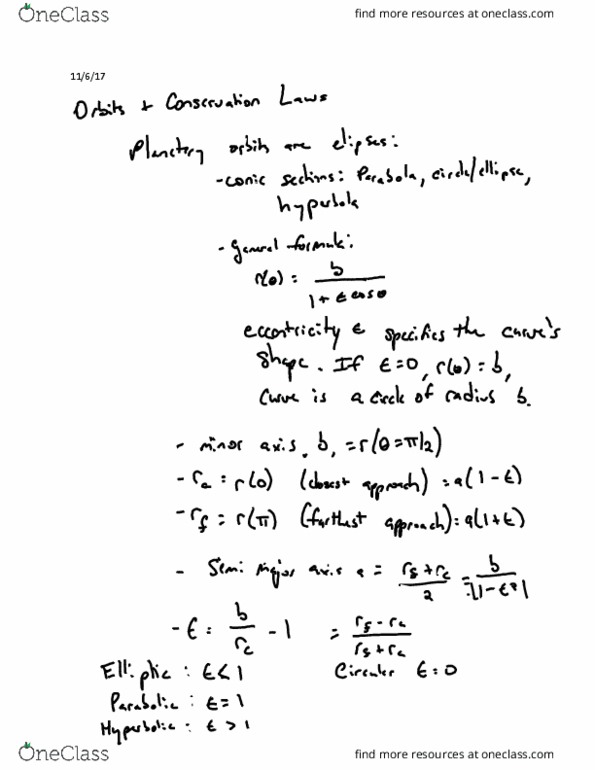 OneClass
find more resources at oneclass.com
11/6/17
Orbits + Conservation Laws
Planetary orbits are elipses:
-conic sections: Parabola, circle/ellipse,
hyperbola
- General formula:
r(θ) = b / (1 + ϵ cosθ)
eccentricity ϵ specifies the curve's
shape. If ϵ=0, r(θ) = b,
Curve is a circle of radius b.
- minor axis, b, = r(θ=π/2)
- rc = r(0) (closest approach) = a(1-ϵ)
- rf = r(π) (furthest approach) = a(1+ϵ)
- Semi major axis a = (rf + rc) / 2 = b / |1-ϵ²|
- ϵ = b / rc - 1 = (rf - rc) / (rf + rc)
Elliptic : ϵ<1 Circular ϵ=0
Parabolic : ϵ=1
Hyperbolic : ϵ > 1
OneClass
find more resources at oneclass.com